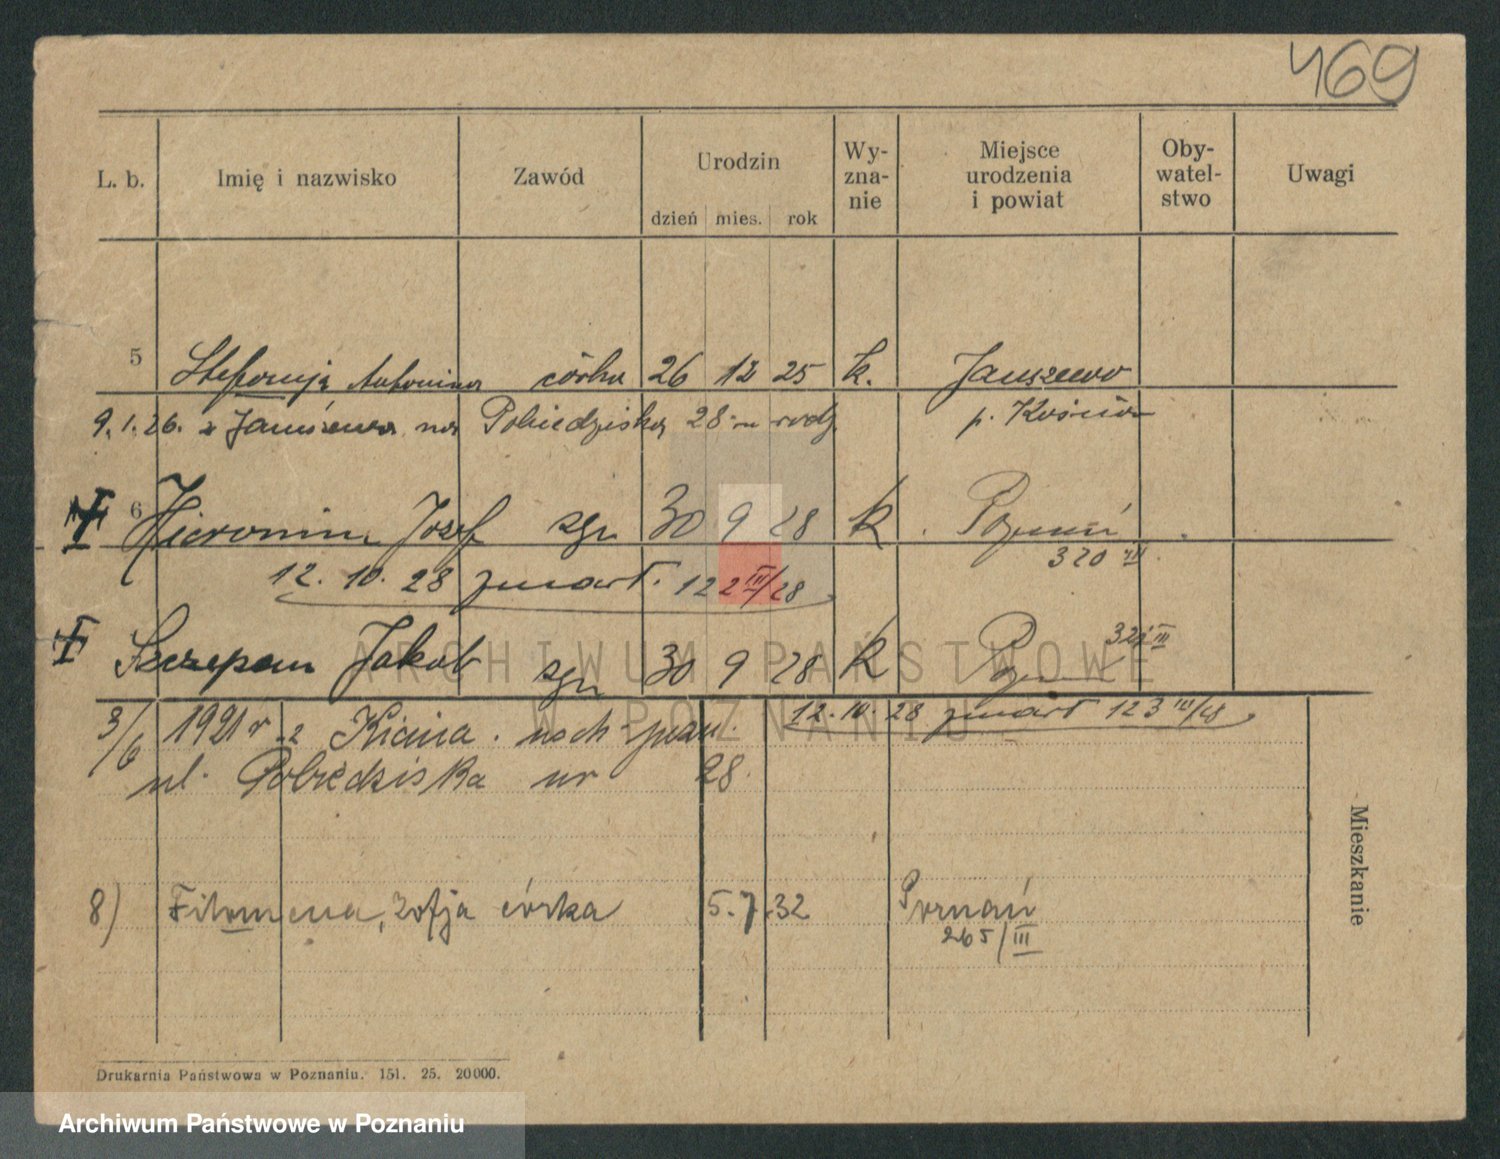 469
L. b. Imię i nazwisko Zawód Urodzin dzień mies. rok Wy-zna-nie Miejsce urodzenia i powiat Oby-watel-stwo Uwagi
5 Antonina córka 26 12 25 k. Januszewo
9.1.26. z Januszewa na Pobiedziska 28 rodz. p.
6 Hieronim Józef syn 30 9 28 k Poznań
320 III
12. 10. 28 zmarł. 122 III/28
Szczepan Jakób syn 30 9 28 k Pozn 321 III
12. 10. 28 zmarł 123 III/28
3/6 1921 r z
ul. Pobiedziska nr 28.
Mieszkanie
8) Filomena, Zofja córka 5. 7. 32 Poznań
265/III
Drukarnia Państwowa w Poznaniu. 151. 25. 20000.
ARCHIWUM PAŃSTWOWE
W POZNANIU
Archiwum Państwowe w Poznaniu